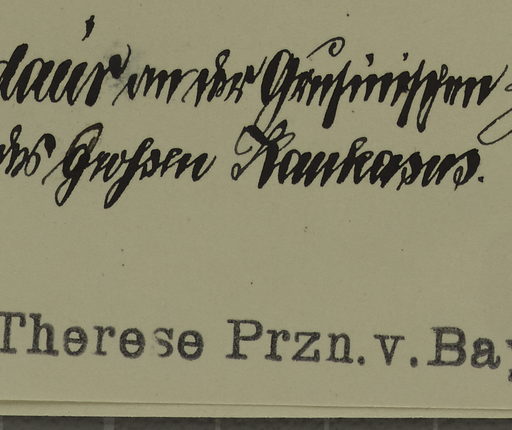 an der Grusinischen
des Großen Kaukasus.
Therese Przn. v. Ba